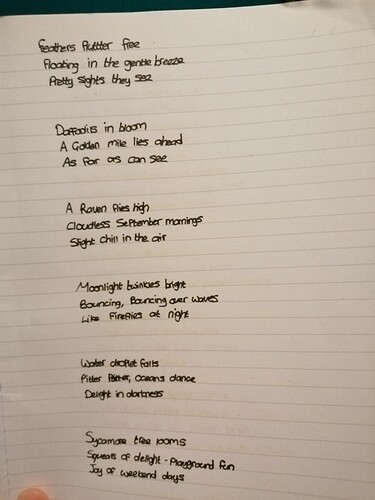 Feathers fluttter free
Floating in the gentle breeze
Pretty sights they see
Daffodils in bloom
A Golden mile lies ahead
As far as can see
A Raven flies high
Cloudless September mornings
Slight chill in the air
Moonlight twinkles bright
Bouncing, Bouncing over waves
Like Fireflies at night
Water droplet falls
Pitter Patter, oceans dance
Delight in darkness
Sycamore tree looms
Squeals of delight - Playground fun
Joy of weekend days